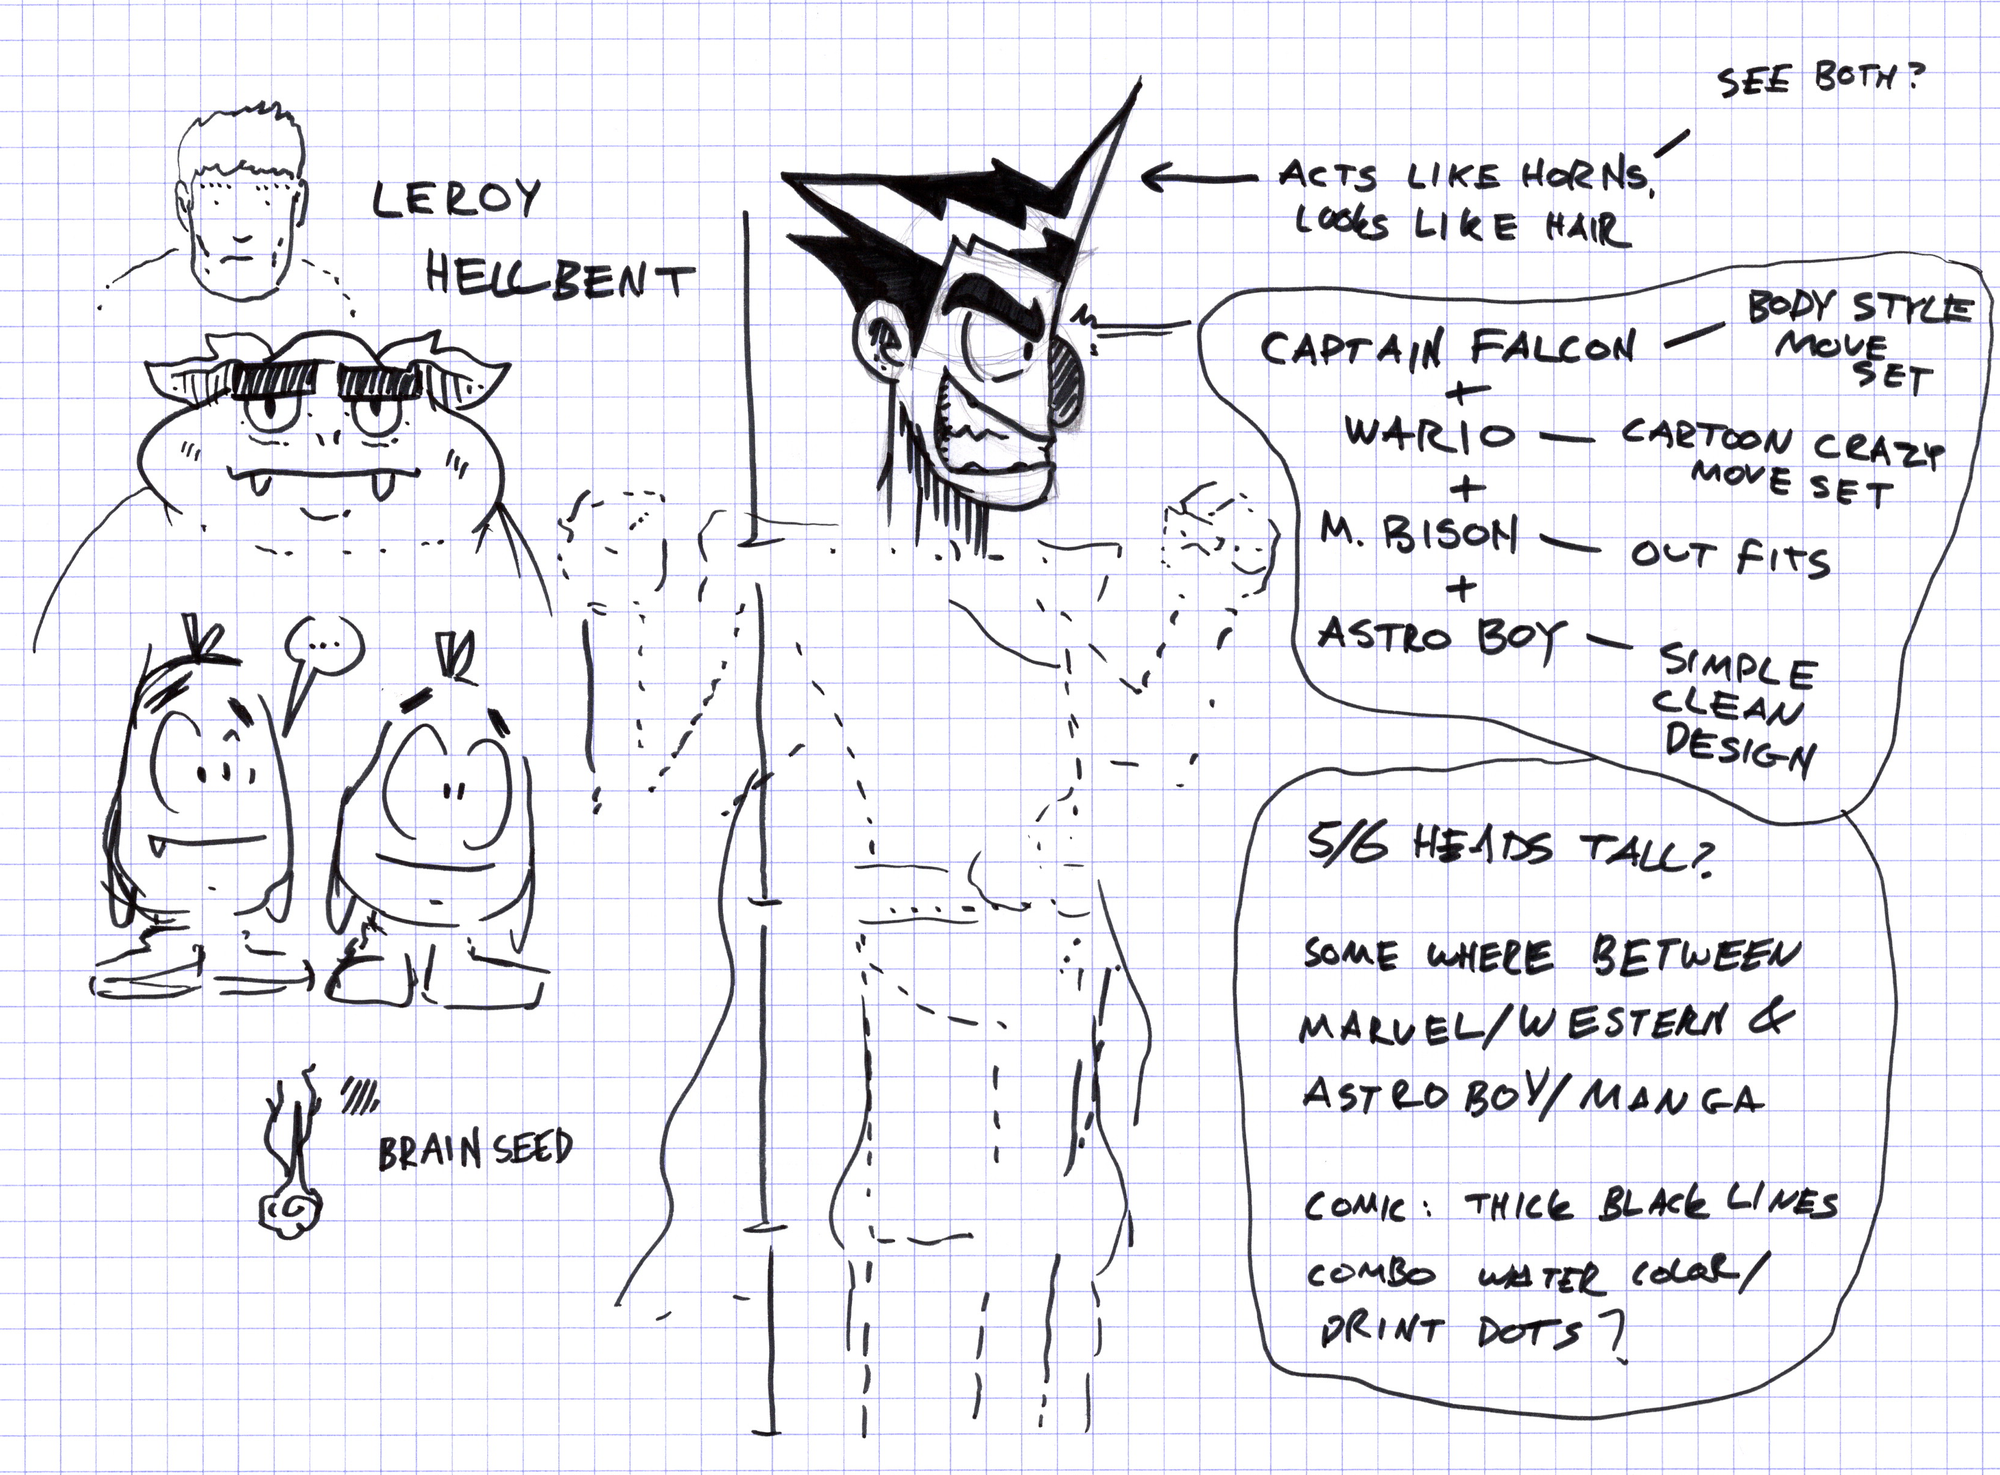 SEE BOTH?
ACTS LIKE HORNS,
LOOKS LIKE HAIR
LEROY
HELLBENT
CAPTAIN FALCON — BODY STYLE
MOVE
SET
+
WARIO — CARTOON CRAZY
MOVE SET
+
M. BISON — OUT FITS
+
ASTRO BOY — SIMPLE
CLEAN
DESIGN
...
5/6 HEADS TALL?
SOME WHERE BETWEEN
MARVEL/WESTERN &
ASTRO BOY/MANGA
COMIC: THICK BLACK LINES
COMBO WATER COLOR/
PRINT DOTS?
BRAIN SEED